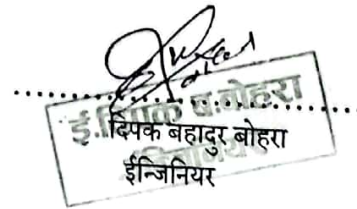 ई.दिपक ब.बोहरा
दिपक बहादुर बोहरा
ईन्जिनियर